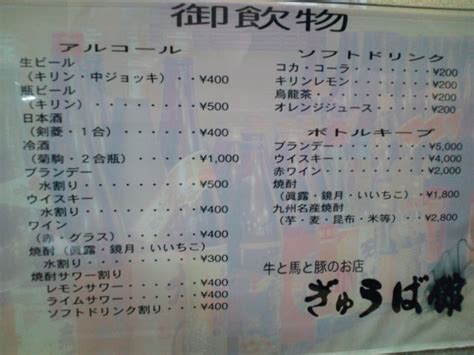 御飲物
アルコール
生ビール
(キリン・中ジョッキ)・・・¥400
瓶ビール
(キリン)・・・・・・・・¥500
日本酒
(剣菱・1合)・・・・・・¥400
冷酒
(菊駒・2合瓶)・・・・¥1,000
ブランデー
水割り・・・・・・・・¥500
ウイスキー
水割り・・・・・・・・¥400
ワイン
(赤・グラス)・・・・・¥400
焼酎(眞露・鏡月・いいちこ)
水割り・・・・・・・・¥300
焼酎サワー割り
レモンサワー・・・・・¥400
ライムサワー・・・・・¥400
ソフトドリンク割り・・¥400
ソフトドリンク
コカ・コーラ・・・・・・・¥200
キリンレモン・・・・・・・¥200
烏龍茶・・・・・・・・・・¥200
オレンジジュース・・・・・¥200
ボトルキープ
ブランデー・・・・・・・¥5,000
ウイスキー・・・・・・・¥4,000
赤ワイン・・・・・・・・¥2,000
焼酎
(眞露・鏡月・いいちこ)¥1,800
九州名産焼酎
(芋・麦・昆布・米等)・¥2,800
牛と馬と豚のお店
ぎゅうば